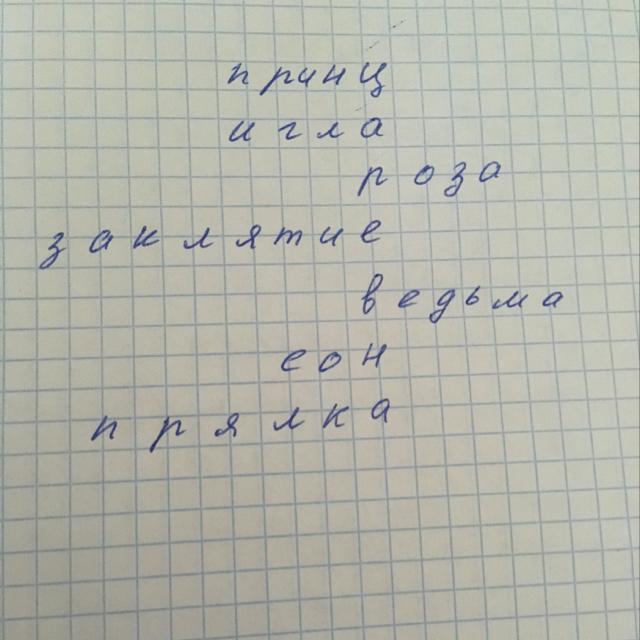 принц
игла
роза
заклятие
ведьма
еон
прялка